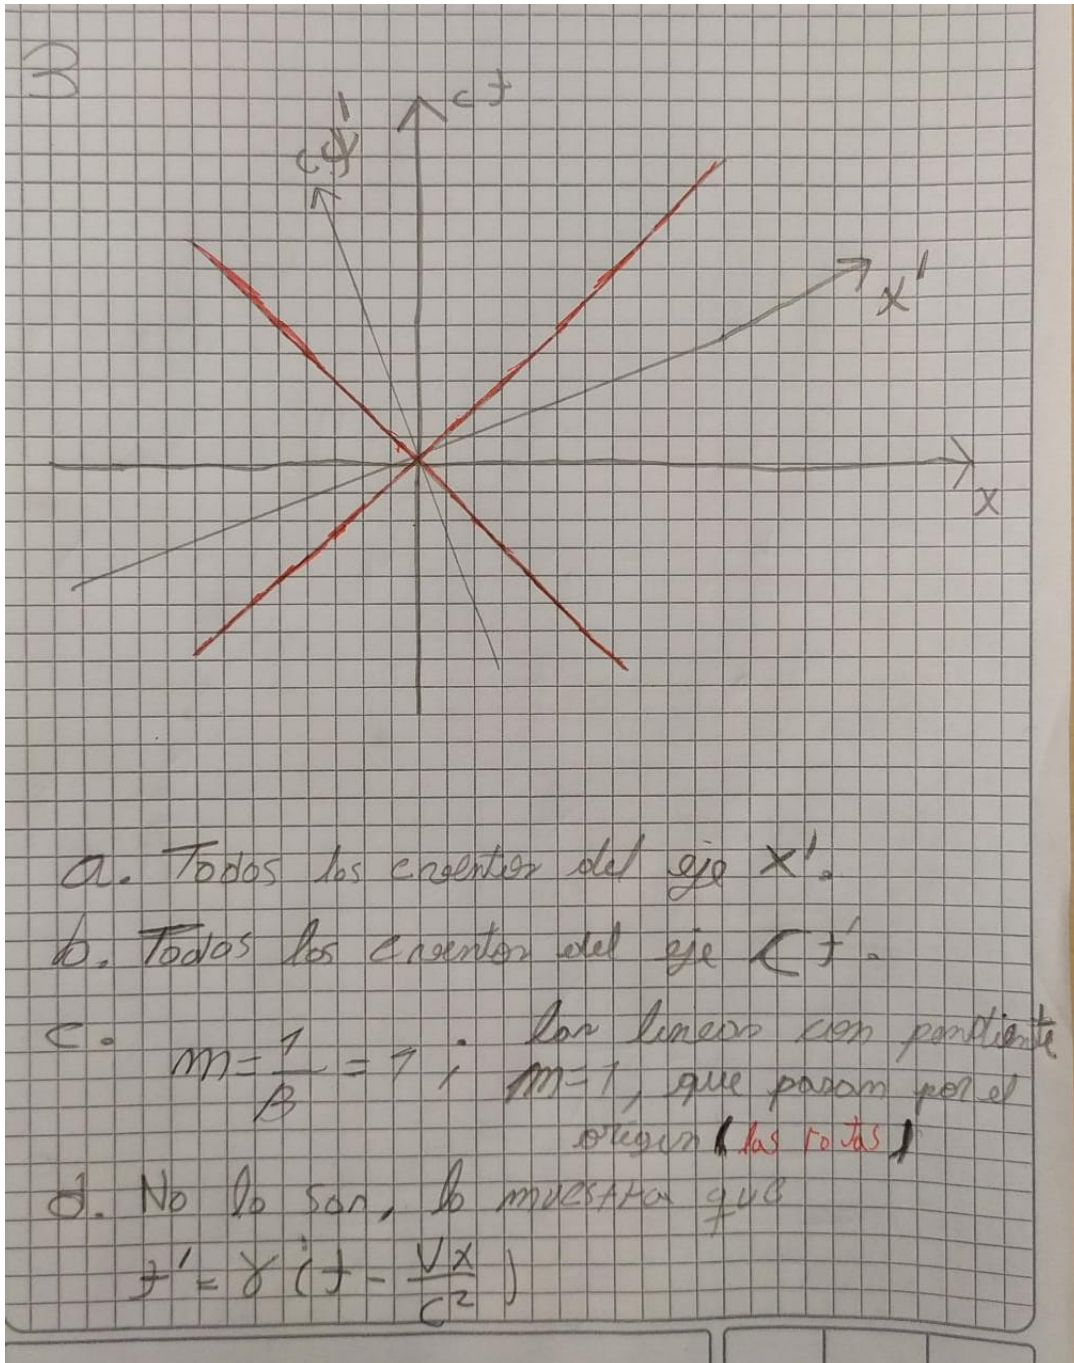 3
ct
ct'
x'
x
a. Todos los eventos del eje x'.
b. Todos los eventos del eje ct'.
c. m = 1/β = 1 ; las lineas con pendiente
m=1, que pasan por el
origen (las rojas)
d. No lo son, lo muestra que
t' = γ (t - Vx/c²)